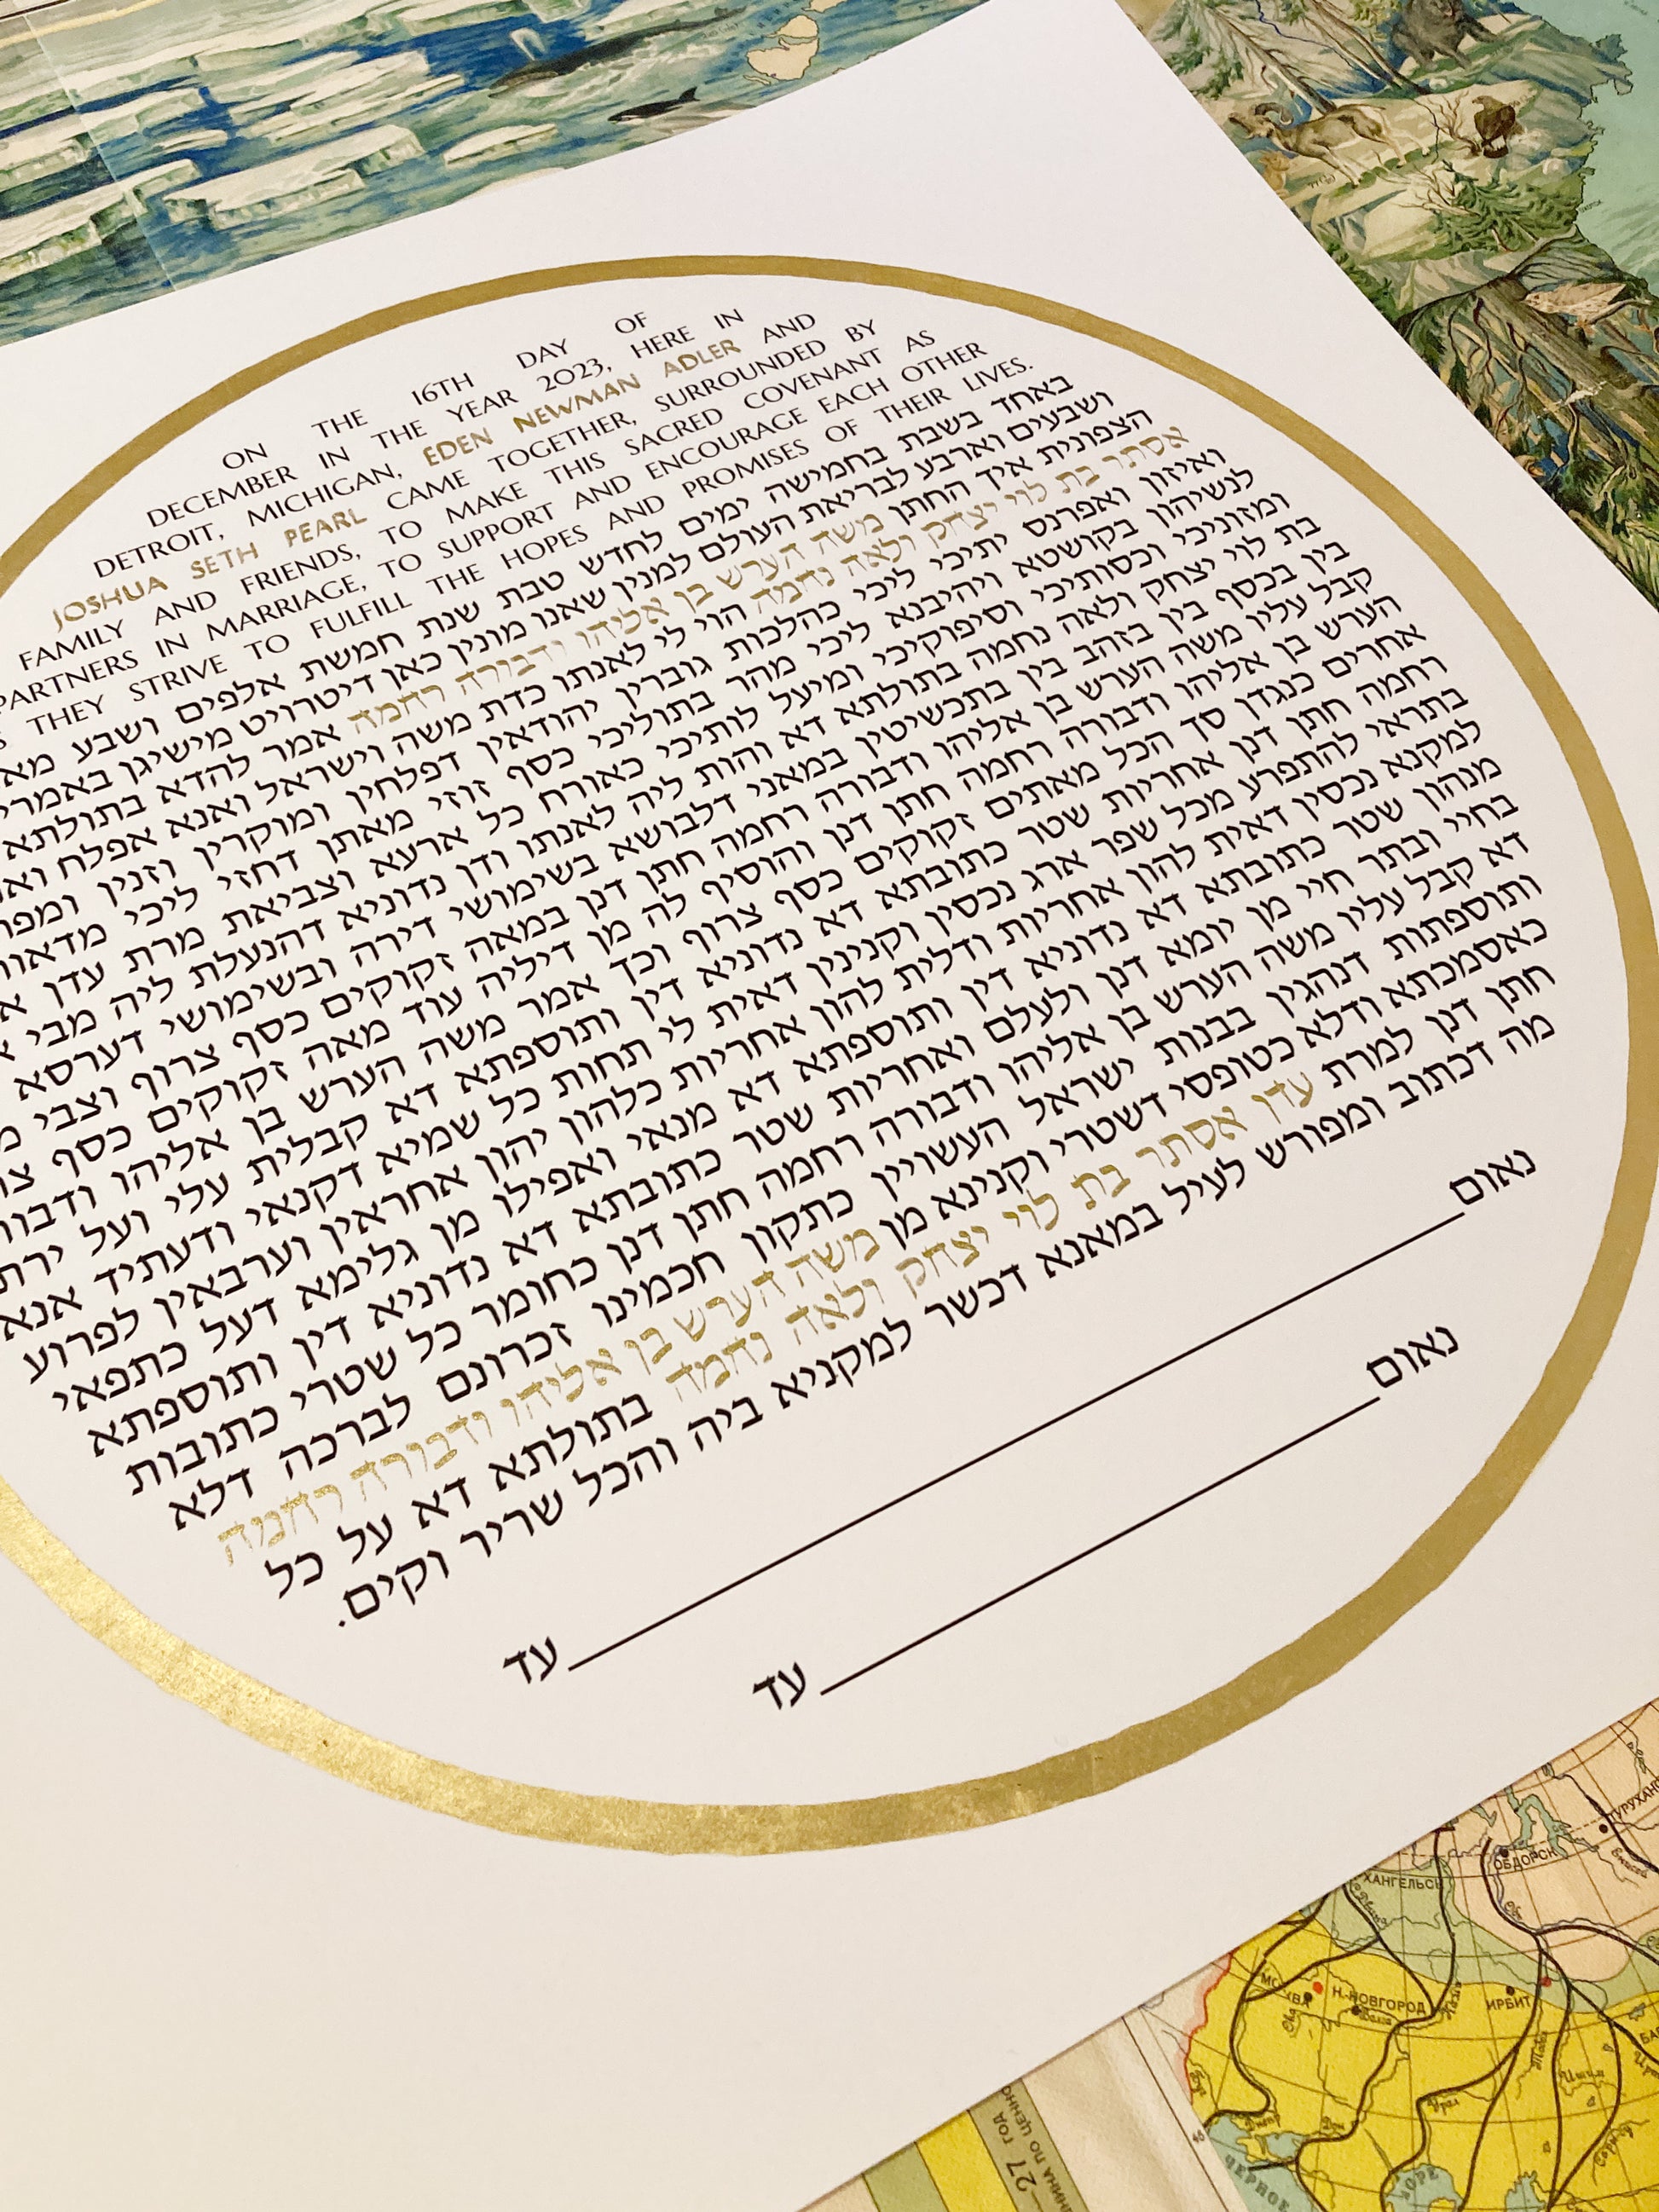 ON THE 16TH DAY OF
DECEMBER IN THE YEAR 2023, HERE IN
DETROIT, MICHIGAN, EDEN NEWMAN ADLER AND
JOSHUA SETH PEARL CAME TOGETHER, SURROUNDED BY
FAMILY AND FRIENDS, TO MAKE THIS SACRED COVENANT AS
PARTNERS IN MARRIAGE, TO SUPPORT AND ENCOURAGE EACH OTHER
THEY STRIVE TO FULFILL THE HOPES AND PROMISES OF THEIR LIVES.
באחד בשבת בחמישה ימים לחדש טבת שנת חמשת אלפים ושבע מא
ושבעים וארבע לבריאת העולם למנין שאנו מונין כאן דיטרויט מישיגן באמרי
הצפונית איך החתן משה הערש בן אליהו ודבורה רחמה אמר להדא בתולתא
אסתר בת לוי יצחק ולאה נחמה הוי לי לאנתו כדת משה וישראל ואנא אפלח
ואיזון ואפרנס יתיכי ליכי כהלכות גוברין יהודאין דפלחין ומוקרין וזנין ומפר
לנשיהון בקושטא ויהיבנא ליכי מהר בתוליכי כסף זוזי מאתן דחזי ליכי
ומזוניכי וכסותיכי וסיפוקיכי ומיעל לותיכי כאורח כל ארעא וצביאת מרת עדן
בת לוי יצחק ולאה נחמה בתולתא דא והות ליה לאנתו ודן נדוניא דהנעלת ליה מבי
בין בכסף בין בזהב בין בתכשיטין במאני דלבושא בשימושי דירה ובשימושי דערסא
קבל עליו משה הערש בן אליהו ודבורה רחמה חתן דנן במאה זקוקים כסף צרוף וצבי
הערש בן אליהו ודבורה רחמה חתן דנן והוסיף לה מן דיליה עוד מאה זקוקים כסף
אחרים כנגדן סך הכל מאתים זקוקים כסף צרוף וכך אמר משה הערש בן אליהו ודבור
רחמה חתן דנן אחריות שטר כתובתא דא נדוניא דין ותוספתא דא קבלית עלי ועל ירת
בתראי להתפרע מכל שפר ארג נכסין וקנינין דאית לי תחות כל שמיא דקנאי ודעתיד אנא
למקנא נכסין דאית להון אחריות ודלית להון אחריות כלהון יהון אחראין וערבאין לפרוע
מנהון שטר כתובתא דא נדוניא דין ותוספתא דא מנאי ואפילו מן גלימא דעל כתפאי
בחיי ובתר חיי מן יומא דנן ולעלם ואחריות שטר כתובתא דא נדוניא דין ותוספתא
דא קבל עליו משה הערש בן אליהו ודבורה רחמה חתן דנן כחומר כל שטרי כתובות
ותוספתות דנהגין בבנות ישראל העשויין כתקון חכמינו זכרונם לברכה דלא
כאסמכתא ודלא כטופסי דשטרי וקנינא מן משה הערש בן אליהו ודבורה רחמה
חתן דנן למרת עדן אסתר בת לוי יצחק ולאה נחמה בתולתא דא על כל
מה דכתוב ומפורש לעיל במאנא דכשר למקניא ביה והכל שריר וקים.
נאום עד
נאום עד
ТУРУХАН
ОБДОРСК
ХАНГЕЛЬСК
МОСКВА
Н-НОВГОРОД
ИРБИТ
Волга
Обь
Урал
Дон
Днепр
ЧЕРНОЕ
27 ГОД